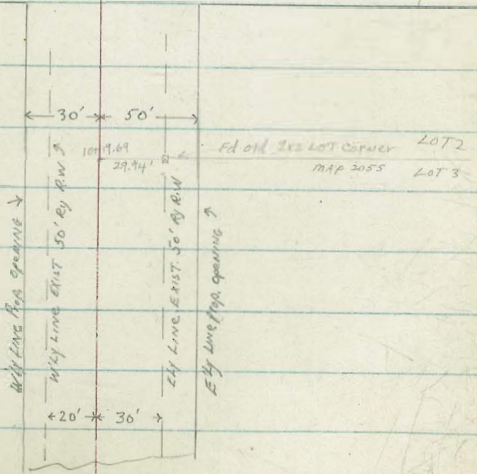 30' 50'
10+19.69
29.94'
Fd old 2x2 LOT Corner LOT 2
MAP 2055 LOT 3
W'LY LINE Prop. opening
W'LY LINE EXIST 50' Ry R.W
E'LY LINE EXIST. 50' Ry R.W
E'LY Line Prop. opening
20' 30'